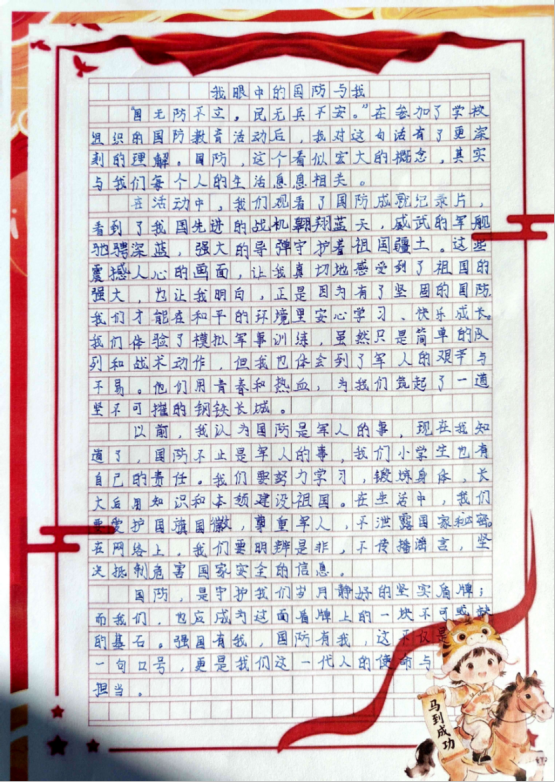 我眼中的国防与我
"国无防不立，民无兵不安。"在参加了学校
组织的国防教育活动后，我对这句话有了更深
刻的理解。国防，这个看似宏大的概念，其实
与我们每个人的生活息息相关。
在活动中，我们观看了国防成就纪录片，
看到了我国先进的战机翱翔蓝天，威武的军舰
驰骋深蓝，强大的导弹守护着祖国疆土。这些
震撼人心的画面，让我真切地感受到了祖国的
强大，也让我明白，正是因为有了坚固的国防
我们才能在和平的环境里安心学习、快乐成长。
我们体验了模拟军事训练，虽然只是简单的队
列和战术动作，但我也体会到了军人的艰辛与
不易。他们用青春和热血，为我们筑起了一道
坚不可摧的钢铁长城。
以前，我认为国防是军人的事，现在我知
道了，国防不止是军人的事，我们小学生也有
自己的责任。我们要努力学习，锻炼身体，长
大后用知识和本领建设祖国。在生活中，我们
要爱护国旗国徽，尊重军人，不泄露国家秘密。
在网络上，我们要明辨是非，不传播谣言，坚
决抵制危害国家安全的信息。
国防，是守护我们岁月静好的坚实盾牌；
而我们，也应成为这面盾牌上的一块不可或缺
的基石。强国有我，国防有我，这不仅是
一句口号，更是我们这一代人的使命与
担当。
马到成功